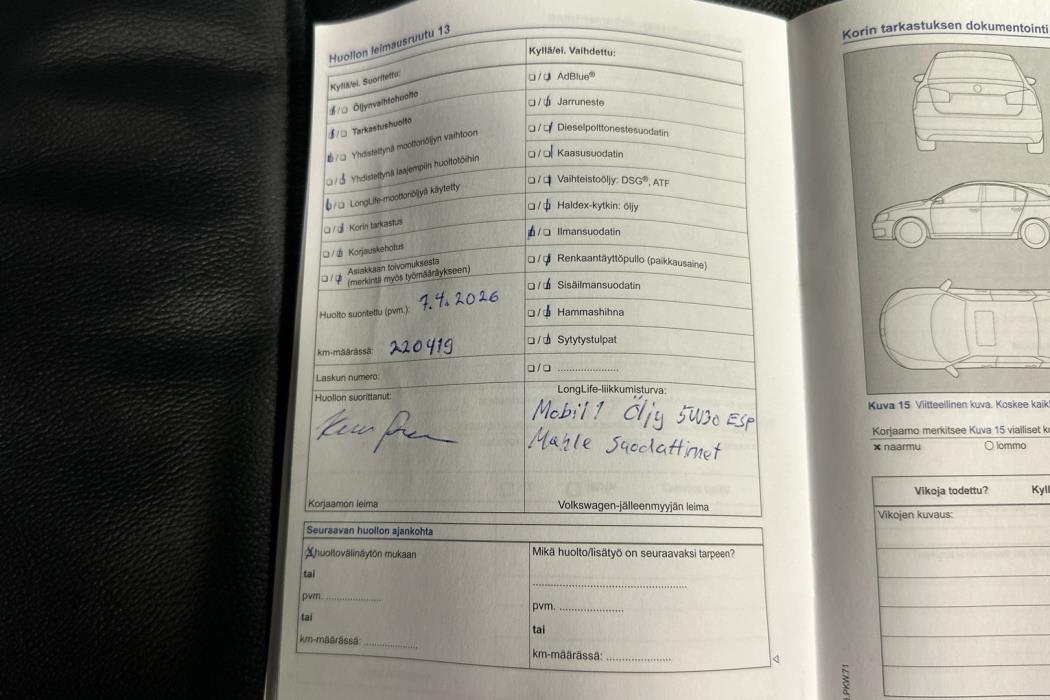 Huollon leimausruutu 13
Kyllä/ei. Suoritettu:
Öljynvaihtohuolto
Tarkastushuolto
Yhdistettynä moottoriöljyn vaihtoon
Yhdistettynä laajempiin huoltotöihin
LongLife-moottoriöljyä käytetty
Korin tarkastus
Korjauskehotus
Asiakkaan toivomuksesta
(merkintä myös työmääräykseen)
Huolto suoritettu (pvm.): 7.4.2026
km-määrässä: 220419
Laskun numero:
Huollon suorittanut:
Korjaamon leima
Kyllä/ei. Vaihdettu:
AdBlue®
Jarruneste
Dieselpolttonestesuodatin
Kaasusuodatin
Vaihteistoöljy: DSG®, ATF
Haldex-kytkin: öljy
Ilmansuodatin
Renkaantäyttöpullo (paikkausaine)
Sisäilmansuodatin
Hammashihna
Sytytystulpat
.....................
LongLife-liikkumisturva:
Mobil 1 Öljy 5W30 ESP
Mahle Suodattimet
Volkswagen-jälleenmyyjän leima
Seuraavan huollon ajankohta
huoltovälinäytön mukaan
tai
pvm. ..................
tai
km-määrässä: ..................
Mikä huolto/lisätyö on seuraavaksi tarpeen?
..................................................
pvm. .....................
tai
km-määrässä: .....................
Korin tarkastuksen dokumentointi
Kuva 15 Viitteellinen kuva. Koskee
Korjaamo merkitsee Kuva 15 vialliset
naarmu
lommo
Vikoja todettu?
Vikojen kuvaus: